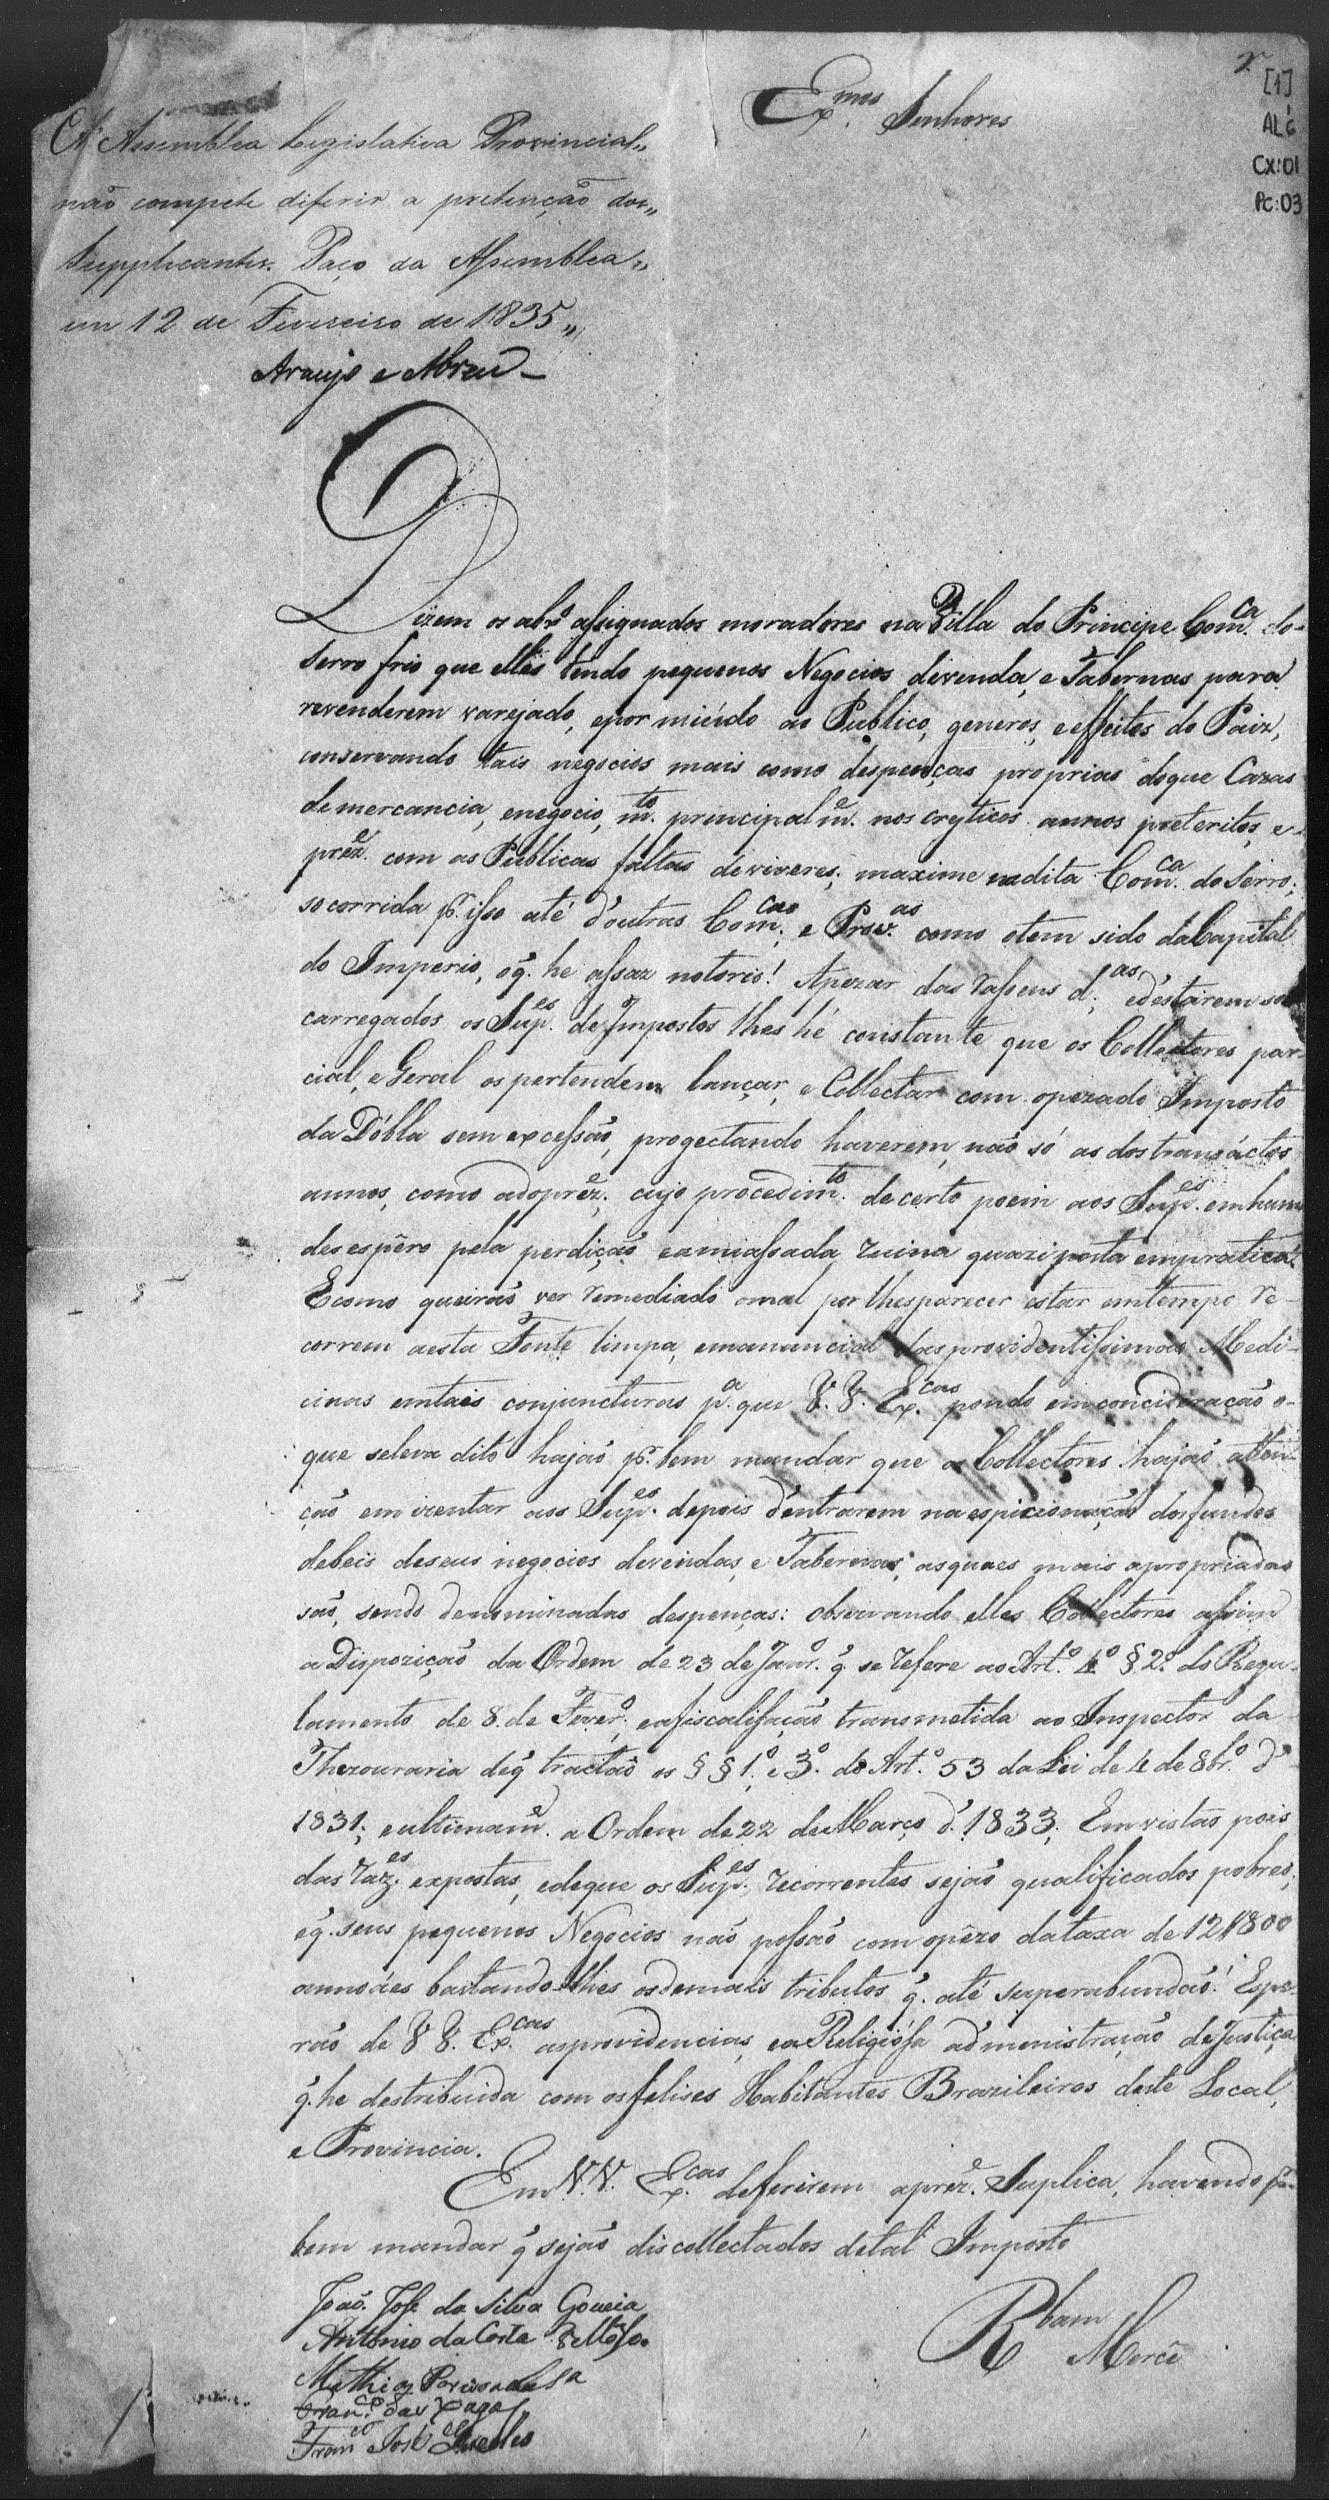 2
[1]
AL6
Cx:01
Pc:03
Ex.mos Senhores
A' Assemblea Legislativa Provincial,,
não compete diferir a pretenção dos,,
Supplicantes. Paço da Assemblea,,
em 12 de Fevereiro de 1835,,
Araujo e Abreu
Dizem os abx.º assignados moradores na Villa do Principe Com.ca do
Serro frio que elles tendo pequenos Negocios devenda, e Tabernas para
revenderem varejado, epor miúdo ao Publico, generos, e effeitos do Paiz,
conservando tais negocios mais como despenças proprias doque Cazas
de mercancia, enegocio, m.to principalm.e nos cryticos annos preteritos, e
prez.e com as Publicas faltas de viveres; maxime nadita Com.ca do Serro;
socorrida p.r isso até d'outras Com.cas, e Prov.as como otem sido da Capital
do Imperio, oq. he assaz notorio! Apezar das d.as, edestarem so
carregados os Sup.es de Impostos lhes hé constante que os Collectores par
cial, e Geral os pertendem lançar, e Collectar com opezado Imposto
da Dóbla sem excessão, progectando haverem, não só as dos transáctos
annos, como adoprez.e; cujo procedim.to decerto poem aos Sup.es em hum
desespêro pela perdição, eamiassada ruina quazi posta empratica.
Ecomo queirão ver remediado omal por lhesparecer estar emtempo re-
correm aesta Fonte limpa, emanancial das providentissimas Medi-
cinas emtais conjuncturas p.a que V.V. Ex.cas pondo em concideração o-
que seleva dito hajão p.r bem mandar que os Collectores hajão atten-
ção em izentar aos Sup.es depois d'entrarem na espicionação dos fundos
debeis deseus negocios devendas, e Tabernas, asquaes mais apropriadas
são, sendo denominadas despenças: observando elles Collectores assim
a Dispozição da Ordem de 23 de Janr.º q. se refere ao Art.º 4º § 2.º do Regu-
lamento de 8 de Fever.º, eafiscalisação transmetida ao Inspector da
Thezouraria deq tractão os § § 1.º e 3.º do Art.º 53 da Lei de 4 de 8br.º d'
1831; eultimam.e a Ordem de 22 de Março d'. 1833; Em vistas pois
das raz.es expostas, edeque os Sup.es recorrentes sejão qualificados pobres;
eq. seus pequenos Negocios não possão com opêzo dataxa de 12$800
annoáes bastando-lhes osdemais tributos q. até superabundão! Espe-
rão de V V. Ex.cas asprovidencias, ea Religiósa administração de Justiça
q. he destribuida com osfelises Habitantes Brazileiros deste Local,
e Provincia.
Em V.V. Ex.cas deferirem aprez.e Suplica, havendo p.r
bem mandar q sejão discollectados detal Imposto
R bam
Mercê
João Jose da Silva Gouveia
Antonio da Costa Vellôso
Mathias
Fran.co das Xagas
Fran.co Jose